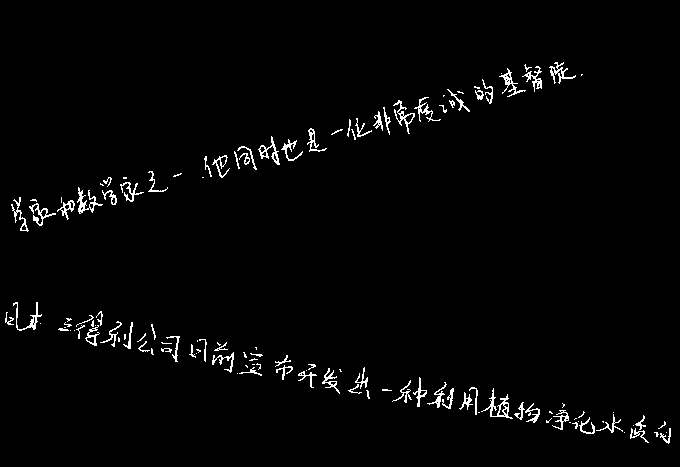 学家和数学家之一.他同时也是一位非常虔诚的基督徒.
日本三得利公司日前宣布开发出一种利用植物净化水质的